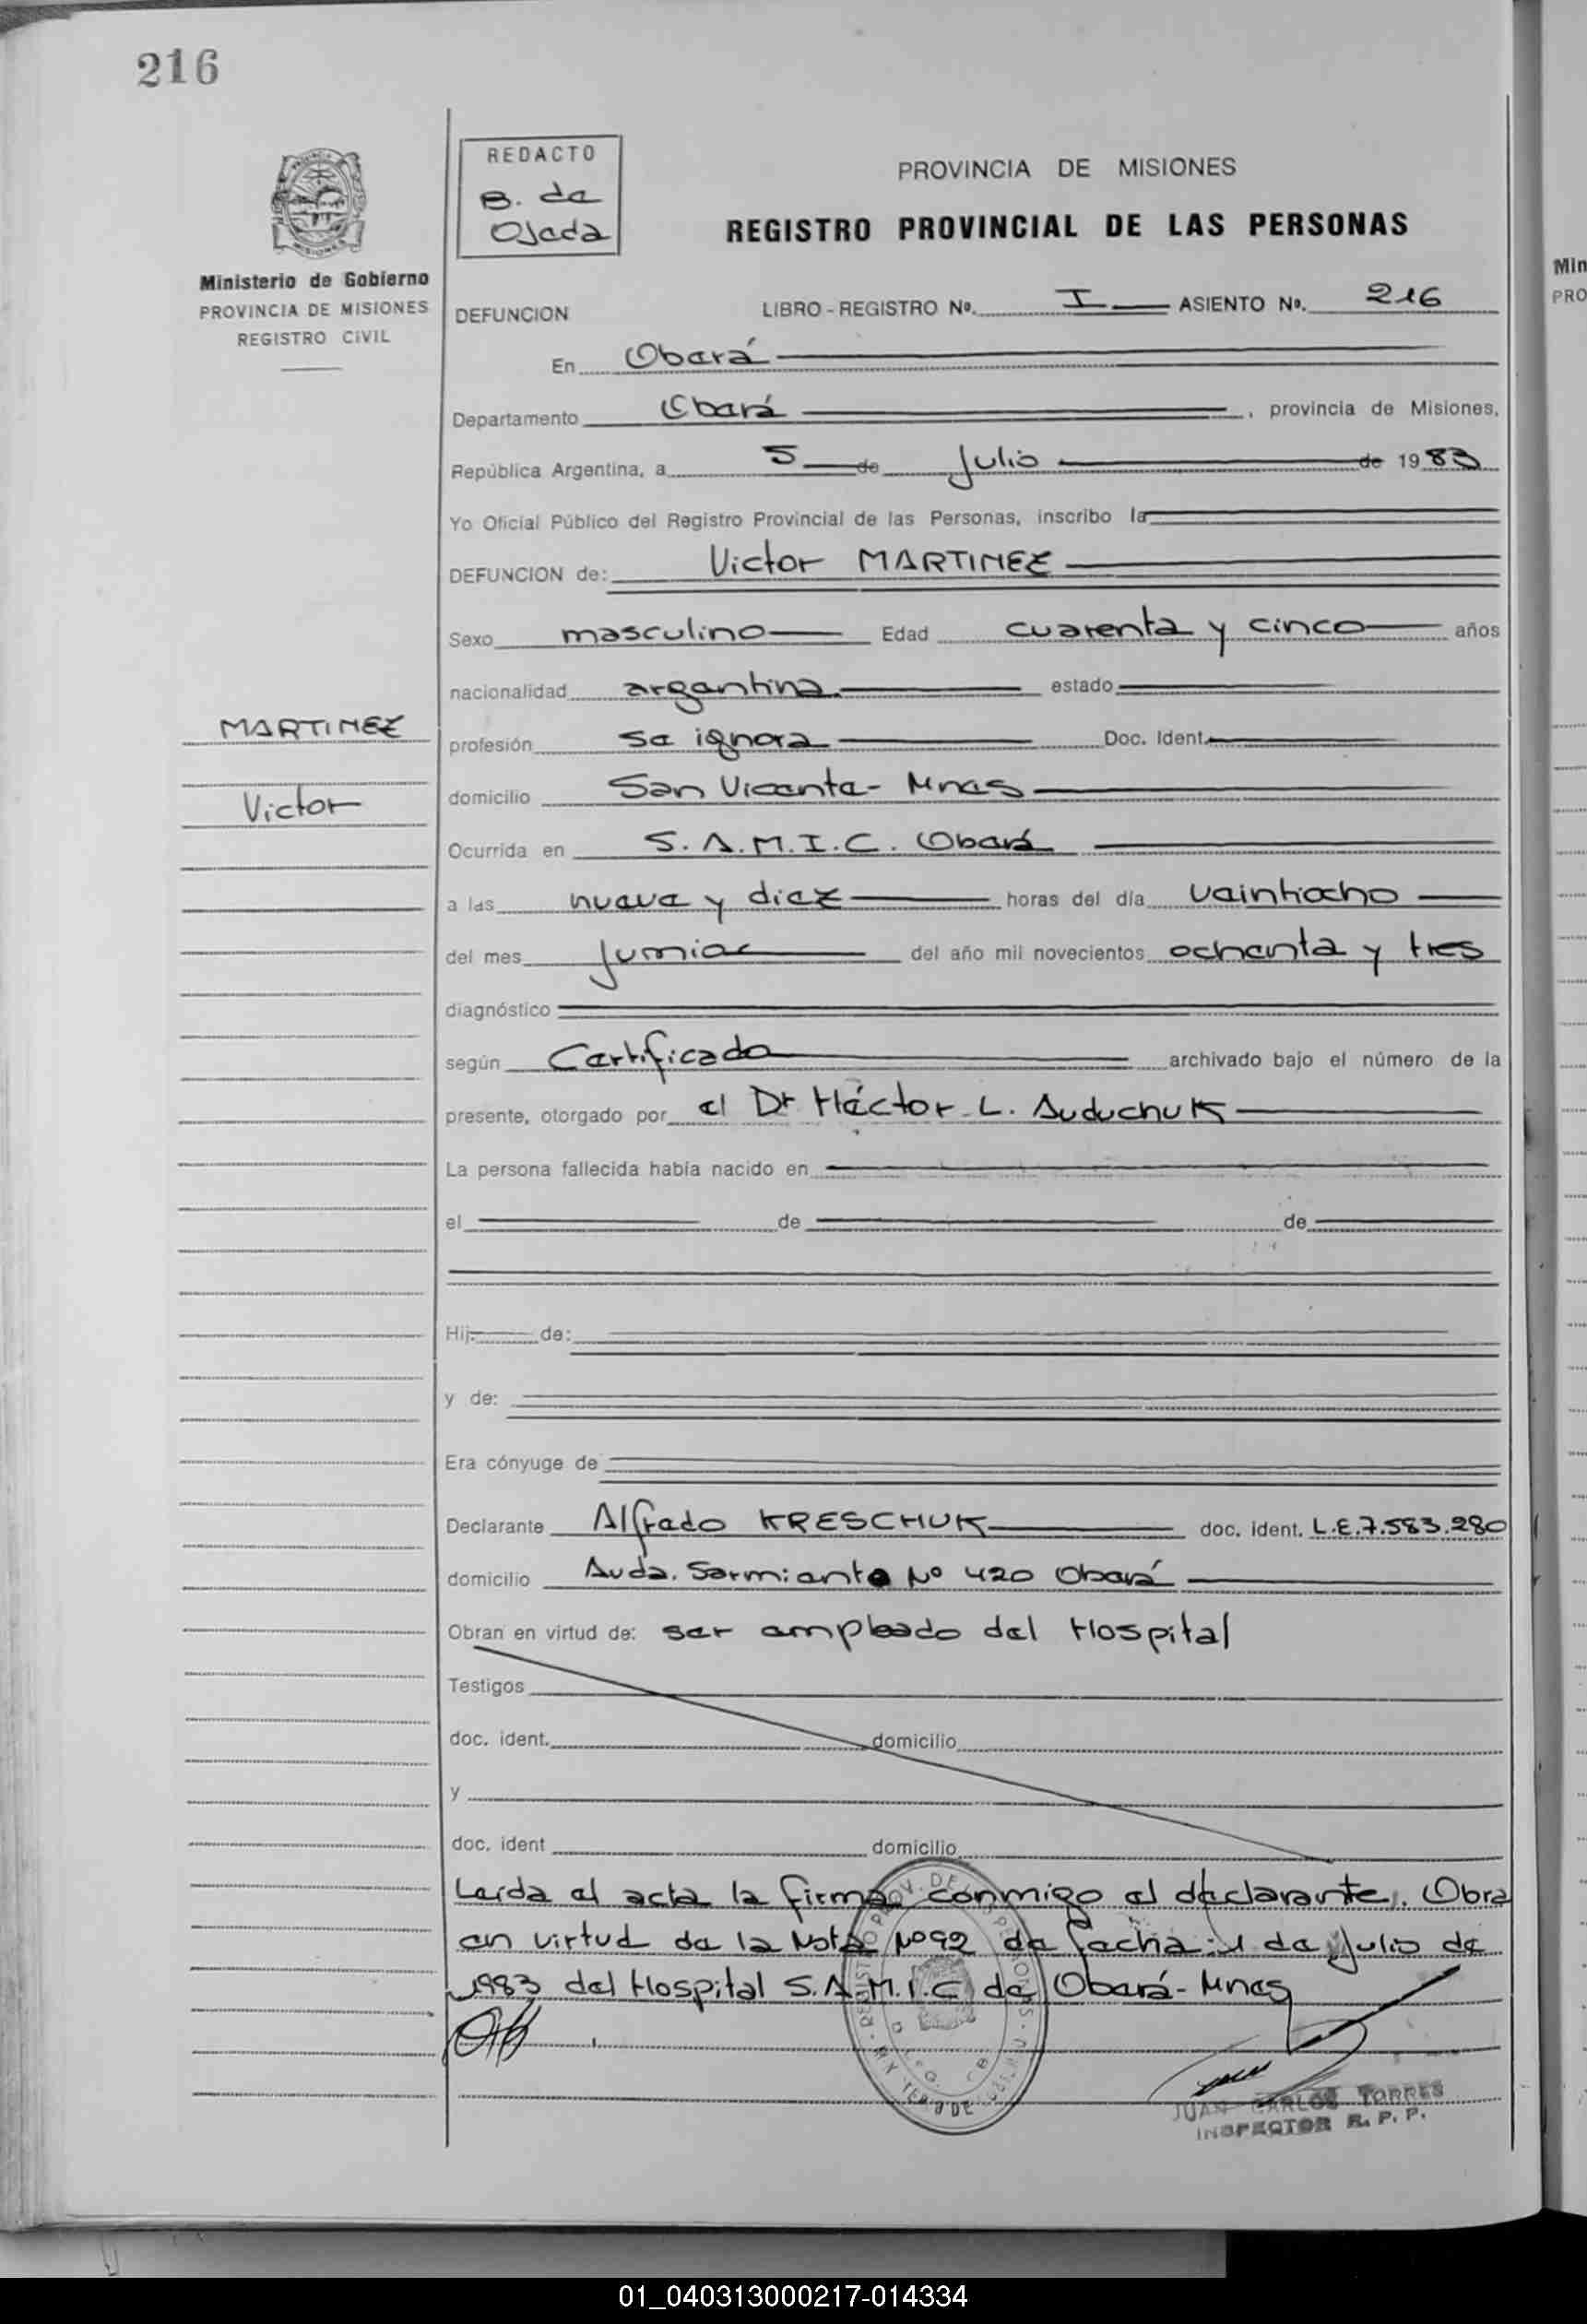 216
REDACTO
B. de
Ojeda
Ministerio de Gobierno
PROVINCIA DE MISIONES
REGISTRO CIVIL
PROVINCIA DE MISIONES
REGISTRO PROVINCIAL DE LAS PERSONAS
DEFUNCION LIBRO - REGISTRO Nº. I ASIENTO Nº. 216
En Oberá
Departamento Oberá, provincia de Misiones,
República Argentina, a 5 de Julio de 1983
Yo Oficial Público del Registro Provincial de las Personas, inscribo la
DEFUNCION de: Victor MARTINEZ
Sexo masculino Edad cuarenta y cinco años
nacionalidad argentina estado
MARTINEZ
profesión se ignora Doc. Ident.
Victor
domicilio San Vicente - Mnes
Ocurrida en S.A.M.I.C. Oberá
a las nueve y diez horas del día veintiocho
del mes Junio del año mil novecientos ochenta y tres
diagnóstico
según Certificado archivado bajo el número de la
presente, otorgado por el Dr Héctor L. Auduchuk
La persona fallecida había nacido en
el de de
Hij de:
y de:
Era cónyuge de
Declarante Alfredo KRESCHUK doc. ident. L.E.7.583.280
domicilio Avda. Sarmiento Nº 420 Oberá
Obran en virtud de: ser empleado del Hospital
Testigos
doc. ident. domicilio
y
doc. ident domicilio
Leída el acta la firma conmigo el declarante. Obra
en virtud de la Nota Nº92 de fecha 1 de Julio de
1983 del Hospital S.A.M.I.C de Oberá - Mnes
JUAN CARLOS TORRES
INSPECTOR R. P. P.
Min
PRO
01_040313000217-014334